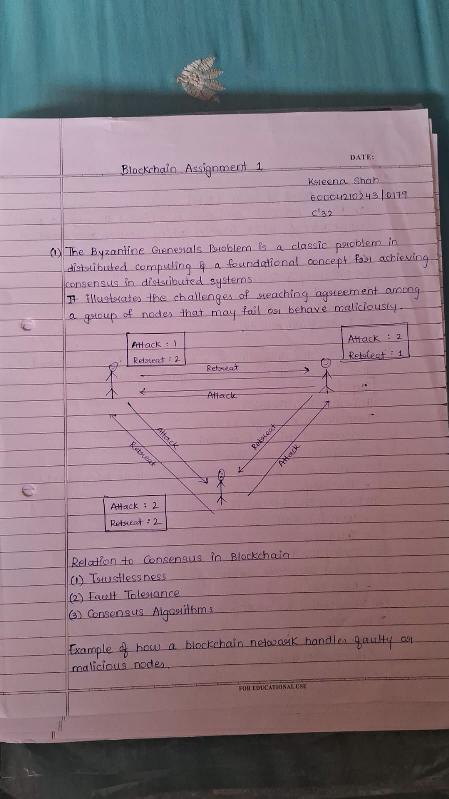 DATE:
Blockchain Assignment 1
Kreena Shah
C'32
(1) The Byzantine Generals Problem is a classic problem in
distributed computing & a foundational concept for achieving
consensus in distributed systems
It illustrates the challenges of reaching agreement among
a group of nodes that may fail or behave maliciously.
Attack : 1
Retreat : 2
Attack : 2
Retreat : 1
Retreat
Attack
Attack
Retreat
Retreat
Attack
Attack : 2
Retreat : 2
Relation to Consensus in Blockchain
(1) Trustlessness
(2) Fault Tolerance
(3) Consensus Algorithms
Example of how a blockchain network handles faulty or
malicious nodes.
FOR EDUCATIONAL USE